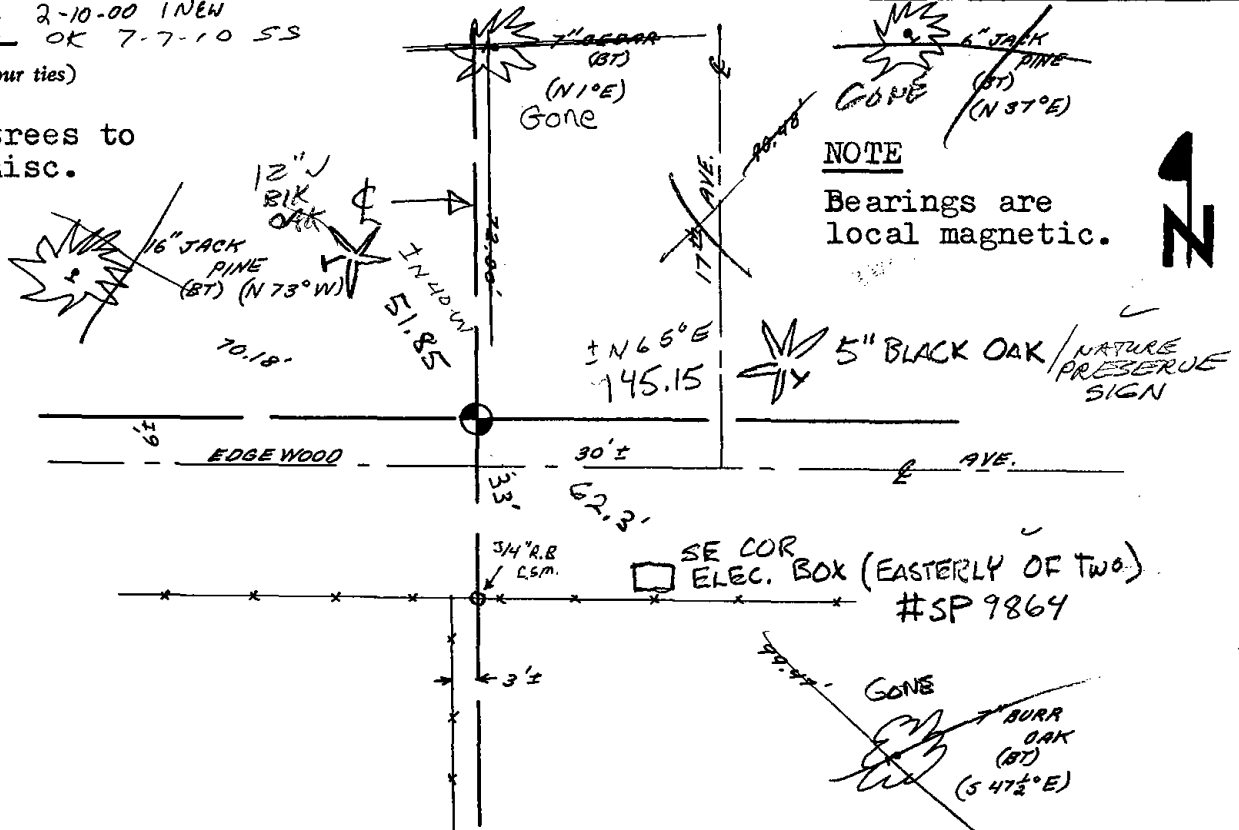 2-10-00 1 NEW
OK 7-7-10 SS
our ties)
grees to
misc.
7" CEDAR
(BT)
(N 1° E)
Gone
6" JACK
PINE
(BT)
(N 37° E)
GONE
NOTE
Bearings are
local magnetic.
N
12"
BLK
OAK
℄
72.00'
17th AVE.
℄
16" JACK
PINE
(BT) (N 73° W)
70.18'
± N 40 W
51.85
± N 65° E
145.15
5" BLACK OAK / NATURE
PRESERVE
SIGN
EDGEWOOD
30' ±
℄
AVE.
33'
62.3'
3/4" R.B
C.S.M.
SE COR
ELEC. BOX (EASTERLY OF TWO)
#SP 9864
3' ±
GONE
7" BURR
OAK
(BT)
(S 47½° E)